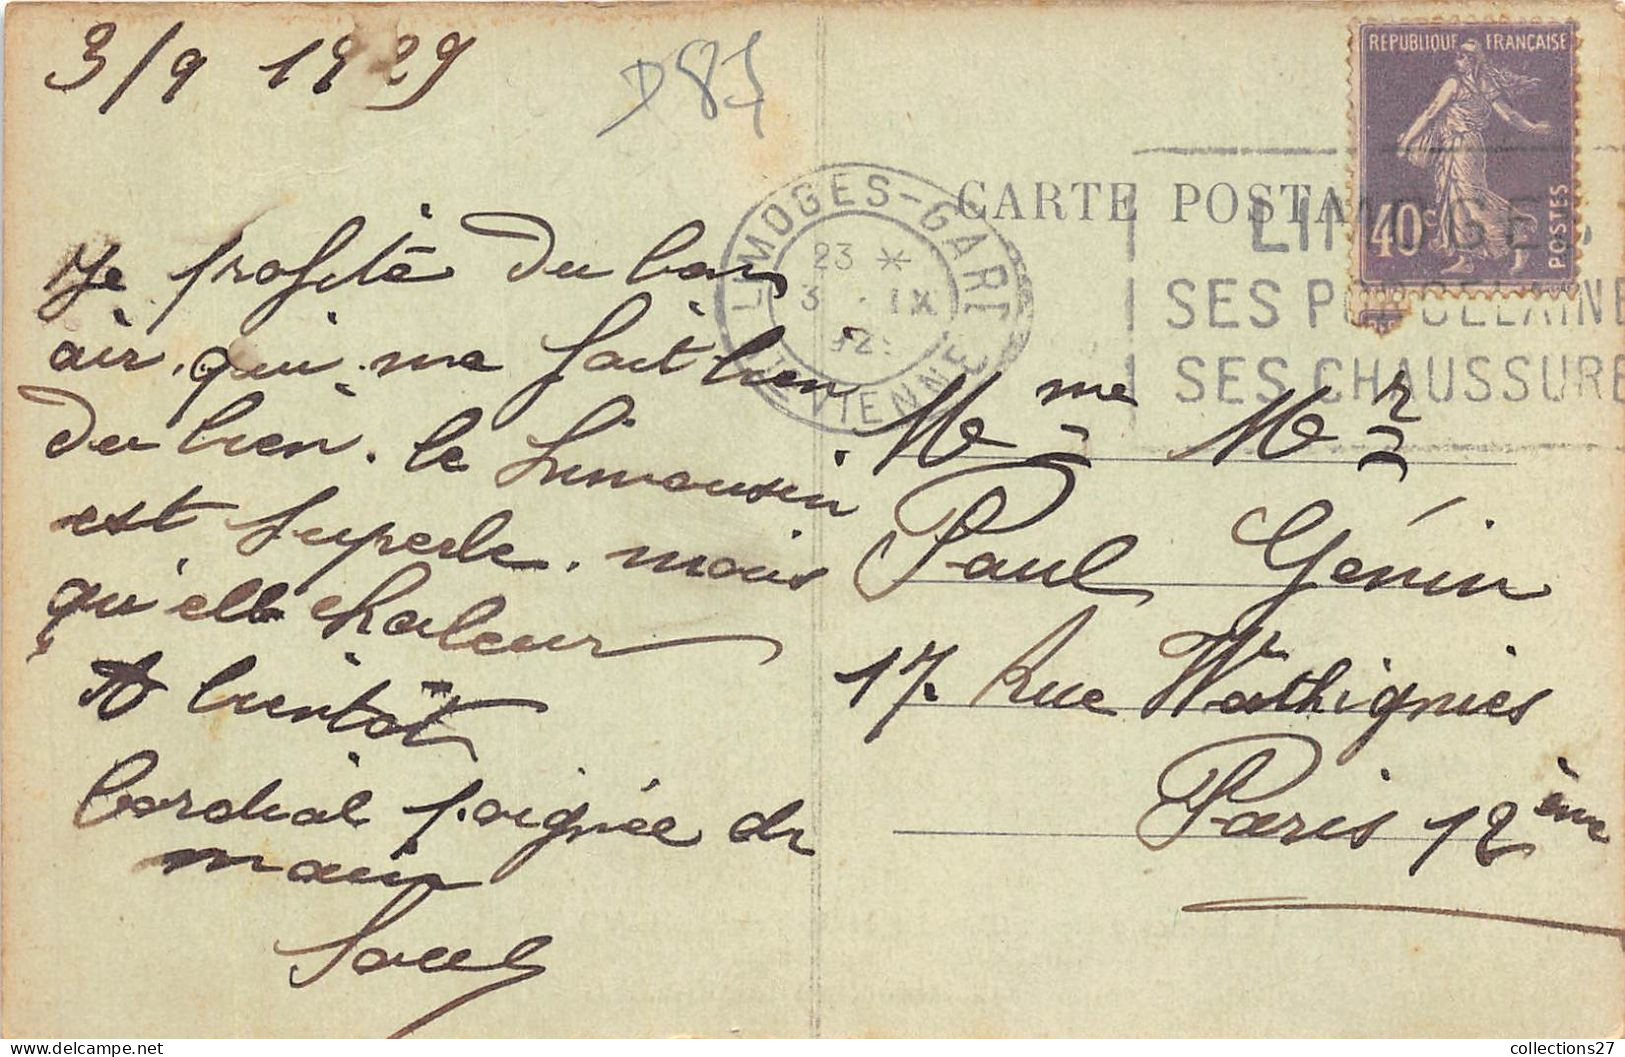 3/9 1929
D87
Je profite du bon
air. qui me fait bien
du bien. le Limousin
est superbe. mais
qu'elle chaleur
A bientôt
Cordial poignée de
main
CARTE POSTA
REPUBLIQUE FRANÇAISE
40c
POSTES
LIMOGES-GARE
23 *
3 . IX
HTE VIENNE
LIMOGES
SES PORCELAINE
SES CHAUSSURE
Mme Mr
Paul Génin
17. Rue Wattignies
Paris 12ème
collections27